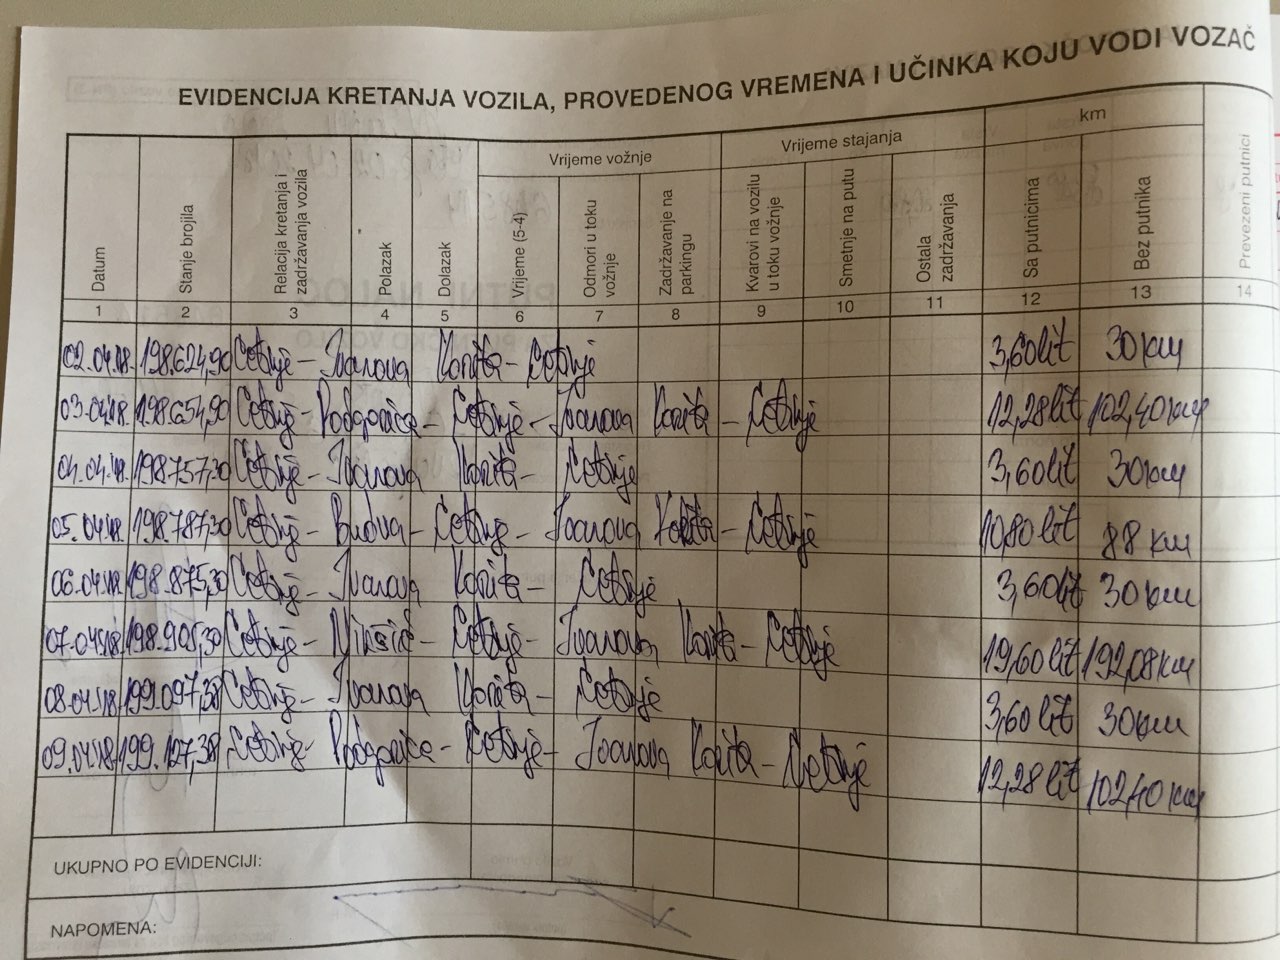 EVIDENCIJA KRETANJA VOZILA, PROVEDENOG VREMENA I UČINKA KOJU VODI VOZAČ
Vrijeme vožnje Vrijeme stajanja km
Datum Stanje brojila Relacija kretanja i zadržavanja vozila Polazak Dolazak Vrijeme (5-4) Odmori u toku vožnje Zadržavanje na parkingu Kvarovi na vozilu u toku vožnje Smetnje na putu Ostala zadržavanja Sa putnicima Bez putnika Prevezeni putnici
1 2 3 4 5 6 7 8 9 10 11 12 13 14
02.04.18. 198.624,90 Cetinje - Ivanova Korita - Cetinje 3,60 lit 30 km
03.04.18. 198.654,90 Cetinje - Podgorica - Cetinje - Ivanova Korita - Cetinje 12,28 lit 102,40 km
04.04.18. 198.757,30 Cetinje - Ivanova Korita - Cetinje 3,60 lit 30 km
05.04.18. 198.787,30 Cetinje - Budva - Cetinje - Ivanova Korita - Cetinje 10,80 lit 88 km
06.04.18 198.875,30 Cetinje - Ivanova Korita - Cetinje 3,60 lit 30 km
07.04.18 198.905,30 Cetinje - Nikšić - Cetinje - Ivanova Korita - Cetinje 19,60 lit 192,08 km
08.04.18 199.097,38 Cetinje - Ivanova Korita - Cetinje 3,60 lit 30 km
09.04.18 199.127,38 Cetinje - Podgorica - Cetinje - Ivanova Korita - Cetinje 12,28 lit 102,40 km
UKUPNO PO EVIDENCIJI:
NAPOMENA: